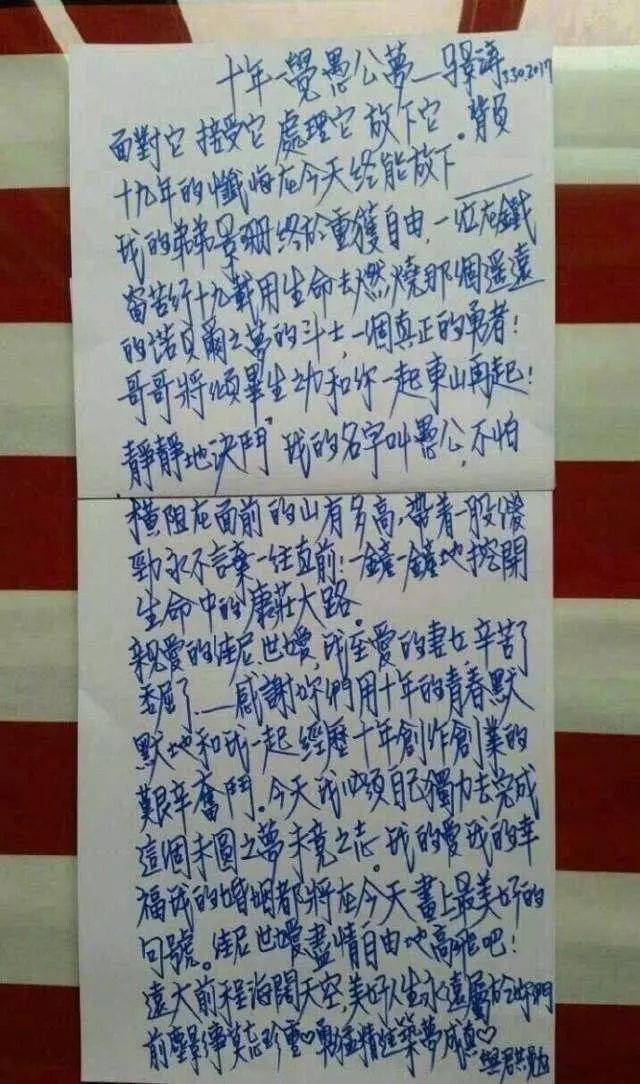 十年一覺愚公夢—景濤 3.30.2017
面對它 接受它 處理它 放下它。背負
十九年的懺悔在今天終能放下——
我的弟弟景珊終於重獲自由,一位在鐵
窗苦行十九載用生命去燃燒那個遙遠
的諾貝爾之夢的斗士,一個真正的勇者!
哥哥將傾畢生之力和你一起東山再起!
靜靜地決鬥,我的名字叫愚公,不怕
橫阻在面前的山有多高,帶着一股傻
勁永不言棄一往直前!一鏟一鏟地挖開
生命中的康莊大路。
親愛的佳尼、世嬡,我至愛的妻女,辛苦了
委屈了——感謝妳們用十年的青春默
默地和我一起經歷十年創作創業的
艱辛奮鬥。今天我必須自己獨力去完成
這個未圓之夢未竟之志。我的愛我的幸
福我的婚姻都將在今天畫上最美好的
句號。佳尼世嬡盡情自由地高飛吧!
遠大前程海闊天空,美好人生永遠屬於妳們
前塵景濤莫忘珍重♡勇猛精進築夢成真♡與君共勉